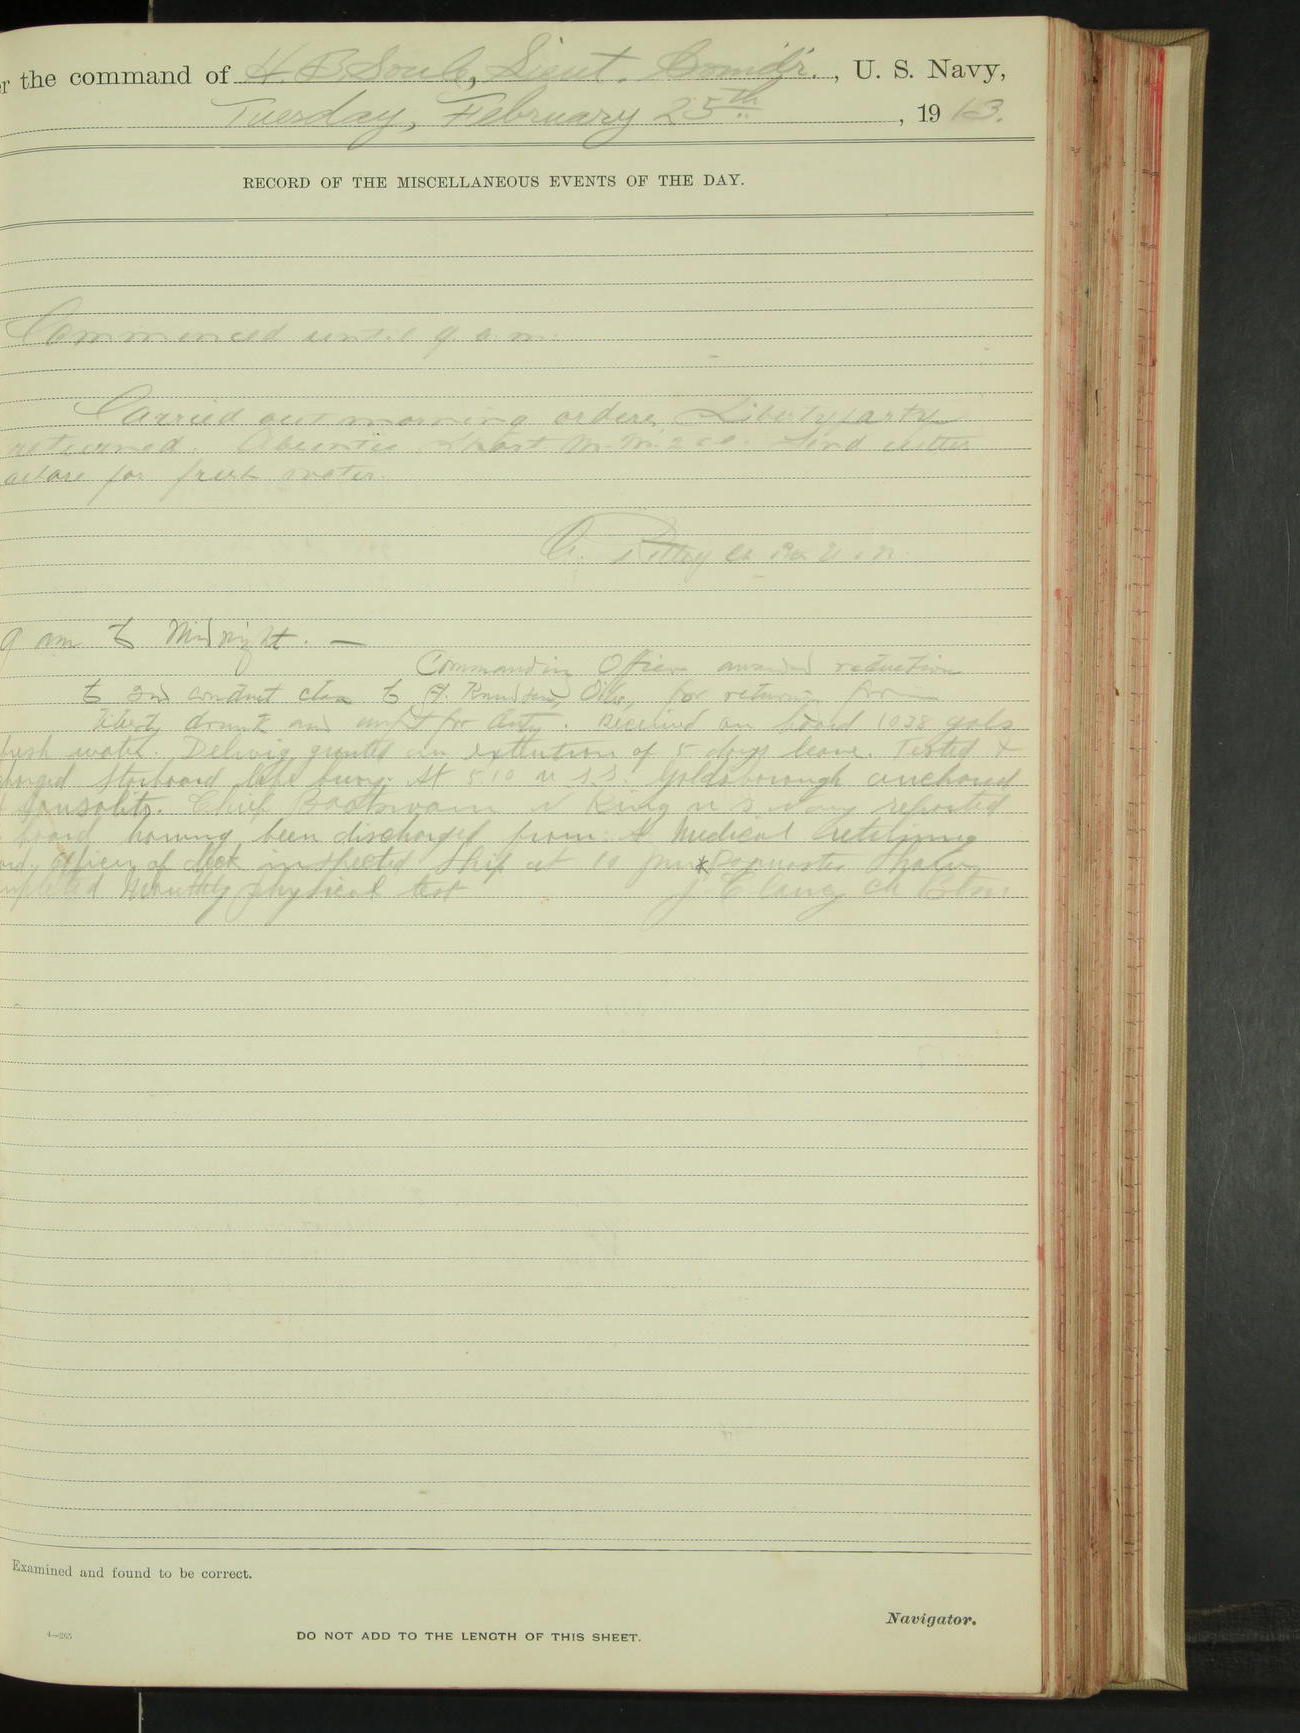 er the command of H. B. Soulé, Lieut. Comd'r., U. S. Navy,
Tuesday, February 25th, 1913.
RECORD OF THE MISCELLANEOUS EVENTS OF THE DAY.
Commenced until 9 a.m.
Carried out morning orders. Liberty party
returned. Absentee M.M. 2 cl. Send cutter
for fresh water.
9 am to Midnight. —
Commanding Officer awarded reduction
to 3rd conduct class to Knudsen, Oiler, for returning from
liberty drunk and unfit for duty. Received on board 1038 gals
fresh water. Delwig granted an extention of 5 days leave. Tested &
charged starboard life buoy. At 5.10 U.S.S. Goldsborough anchored
Sausalito. Chief Boatswain N King U S Navy reported
board having been discharged from a Medical retiring
officer of deck inspected ship at 10 pm *Paymaster
completed Monthly physical test
Examined and found to be correct.
Navigator.
4—265
DO NOT ADD TO THE LENGTH OF THIS SHEET.